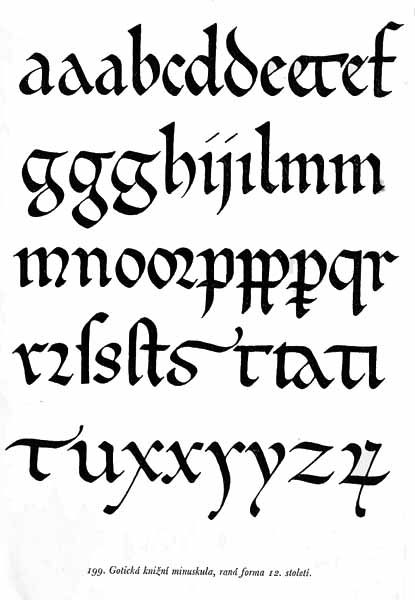 aaabcddeeꞇef
ggghijıılmm
mnooꝛpppꝑqr
rꝛſsſtsꞇꞇatı
ꞇuxxyyzꝝ
199. Gotická knižní minuskula, raná forma 12. století.